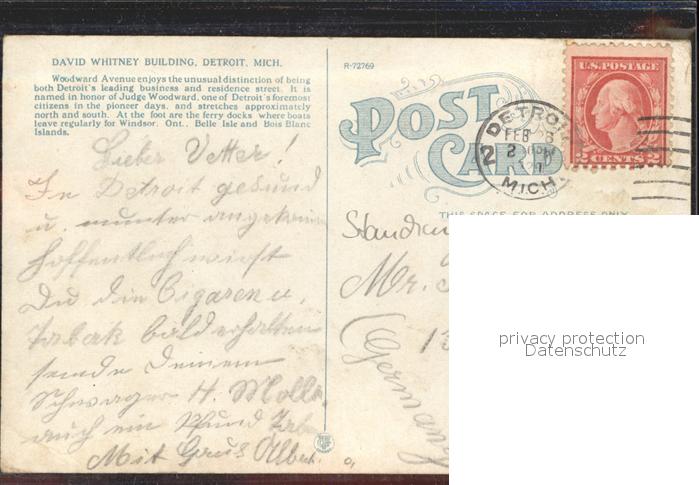 DAVID WHITNEY BUILDING, DETROIT, MICH.
Woodward Avenue enjoys the unusual distinction of being
both Detroit's leading business and residence street. It is
named in honor of Judge Woodward, one of Detroit's foremost
citizens in the pioneer days, and stretches approximately
north and south. At the foot are the ferry docks where boats
leave regularly for Windsor, Ont., Belle Isle and Bois Blanc
Islands.
Lieber Vetter!
In Detroit gesund
u. munter angekom
hoffentlich wirst
Du die Cigaren u.
Tabak bald erhalten
sende Deinem
Schwager H. Moll
auch ein Pfund Tab
Mit Gruß Albert.
R-72769
POST
CARD
THIS SPACE FOR ADDRESS ONLY
Mr.
(Germany
U.S. POSTAGE
2 CENTS 2
DETROIT
FEB
2
MICH.
2
privacy protection
Datenschutz